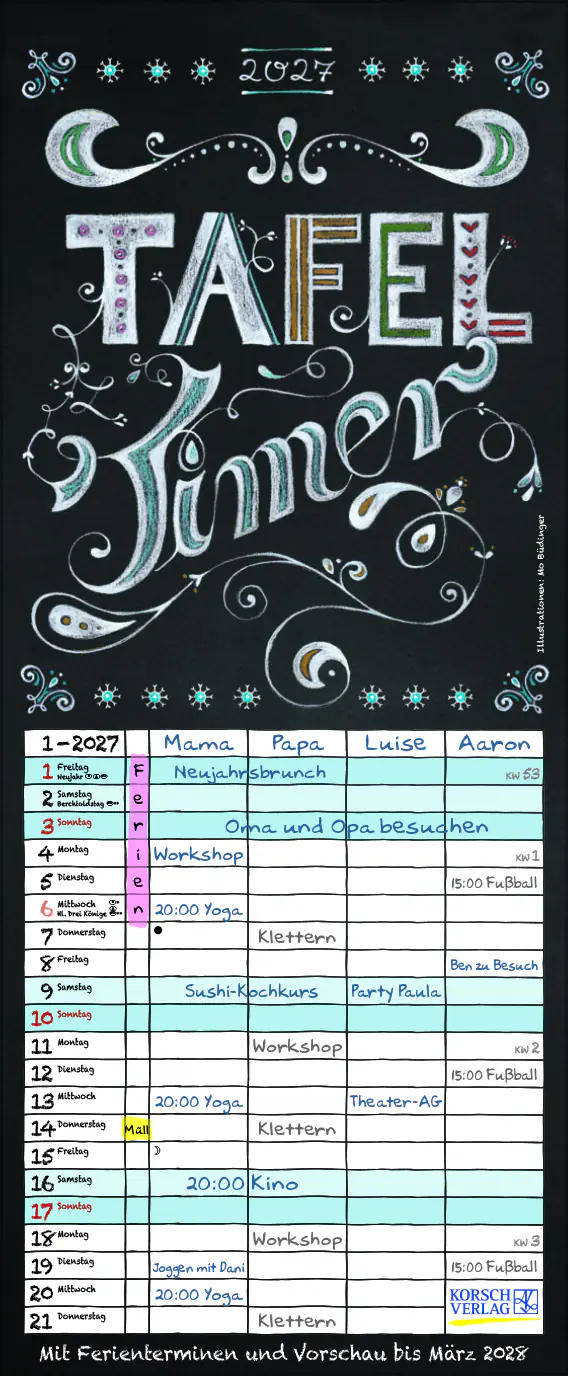 2027
TAFEL
Timer
Illustrationen: Mo Büdinger
1-2027 Mama Papa Luise Aaron
1 Freitag Neujahr Neujahrsbrunch KW 53
2 Samstag Berchtoldstag
3 Sonntag Oma und Opa besuchen
4 Montag Workshop KW 1
5 Dienstag 15:00 Fußball
6 Mittwoch Hl. Drei Könige 20:00 Yoga
Ferien
7 Donnerstag Klettern
8 Freitag Ben zu Besuch
9 Samstag Sushi-Kochkurs Party Paula
10 Sonntag
11 Montag Workshop KW 2
12 Dienstag 15:00 Fußball
13 Mittwoch 20:00 Yoga Theater-AG
14 Donnerstag Müll Klettern
15 Freitag
16 Samstag 20:00 Kino
17 Sonntag
18 Montag Workshop KW 3
19 Dienstag Joggen mit Dani 15:00 Fußball
20 Mittwoch 20:00 Yoga
21 Donnerstag Klettern
KORSCH
VERLAG
Mit Ferienterminen und Vorschau bis März 2028